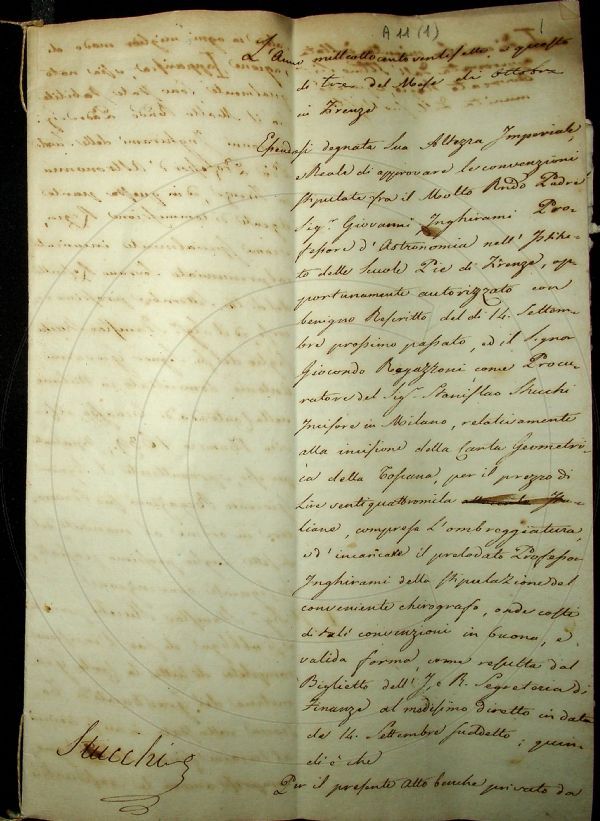 A 11 (1)
1
L'Anno mille ottocento ventisette e questo
dì tre del Mese di Ottobre
in Firenze
Essendosi degnata Sua Altezza Imperiale,
e Reale di approvare le convenzioni
stipulate fra il Molto Rndo Padre
Sig.r Giovanni Inghirami Pro-
fessore d'Astronomia nell'Istitu-
to delle Scuole Pie di Firenze, op-
portunamente autorizzato con
benigno Rescritto del dì 14. Settem-
bre prossimo passato, ed il Signor
Giocondo Ragazzoni come Procu-
ratore del Sig.r Stanislao Stucchi
Incisore in Milano, relativamente
alla incisione della Carta Geometri-
ca della Toscana, per il prezzo di
Lire ventiquattromila Ita-
liane, compresa l'ombreggiatura,
e d'incaricare il prelodato Professor
Inghirami della stipulazione del
conveniente chirografo, onde coste
di tali convenzioni in buona, e
valida forma, come resulta dal
Biglietto dell'I. e R. Segreteria di
Finanze al medesimo diretto in data
de 14. Settembre suddetto; quin-
di è che
Per il presente Atto benche privato da
Stucchi